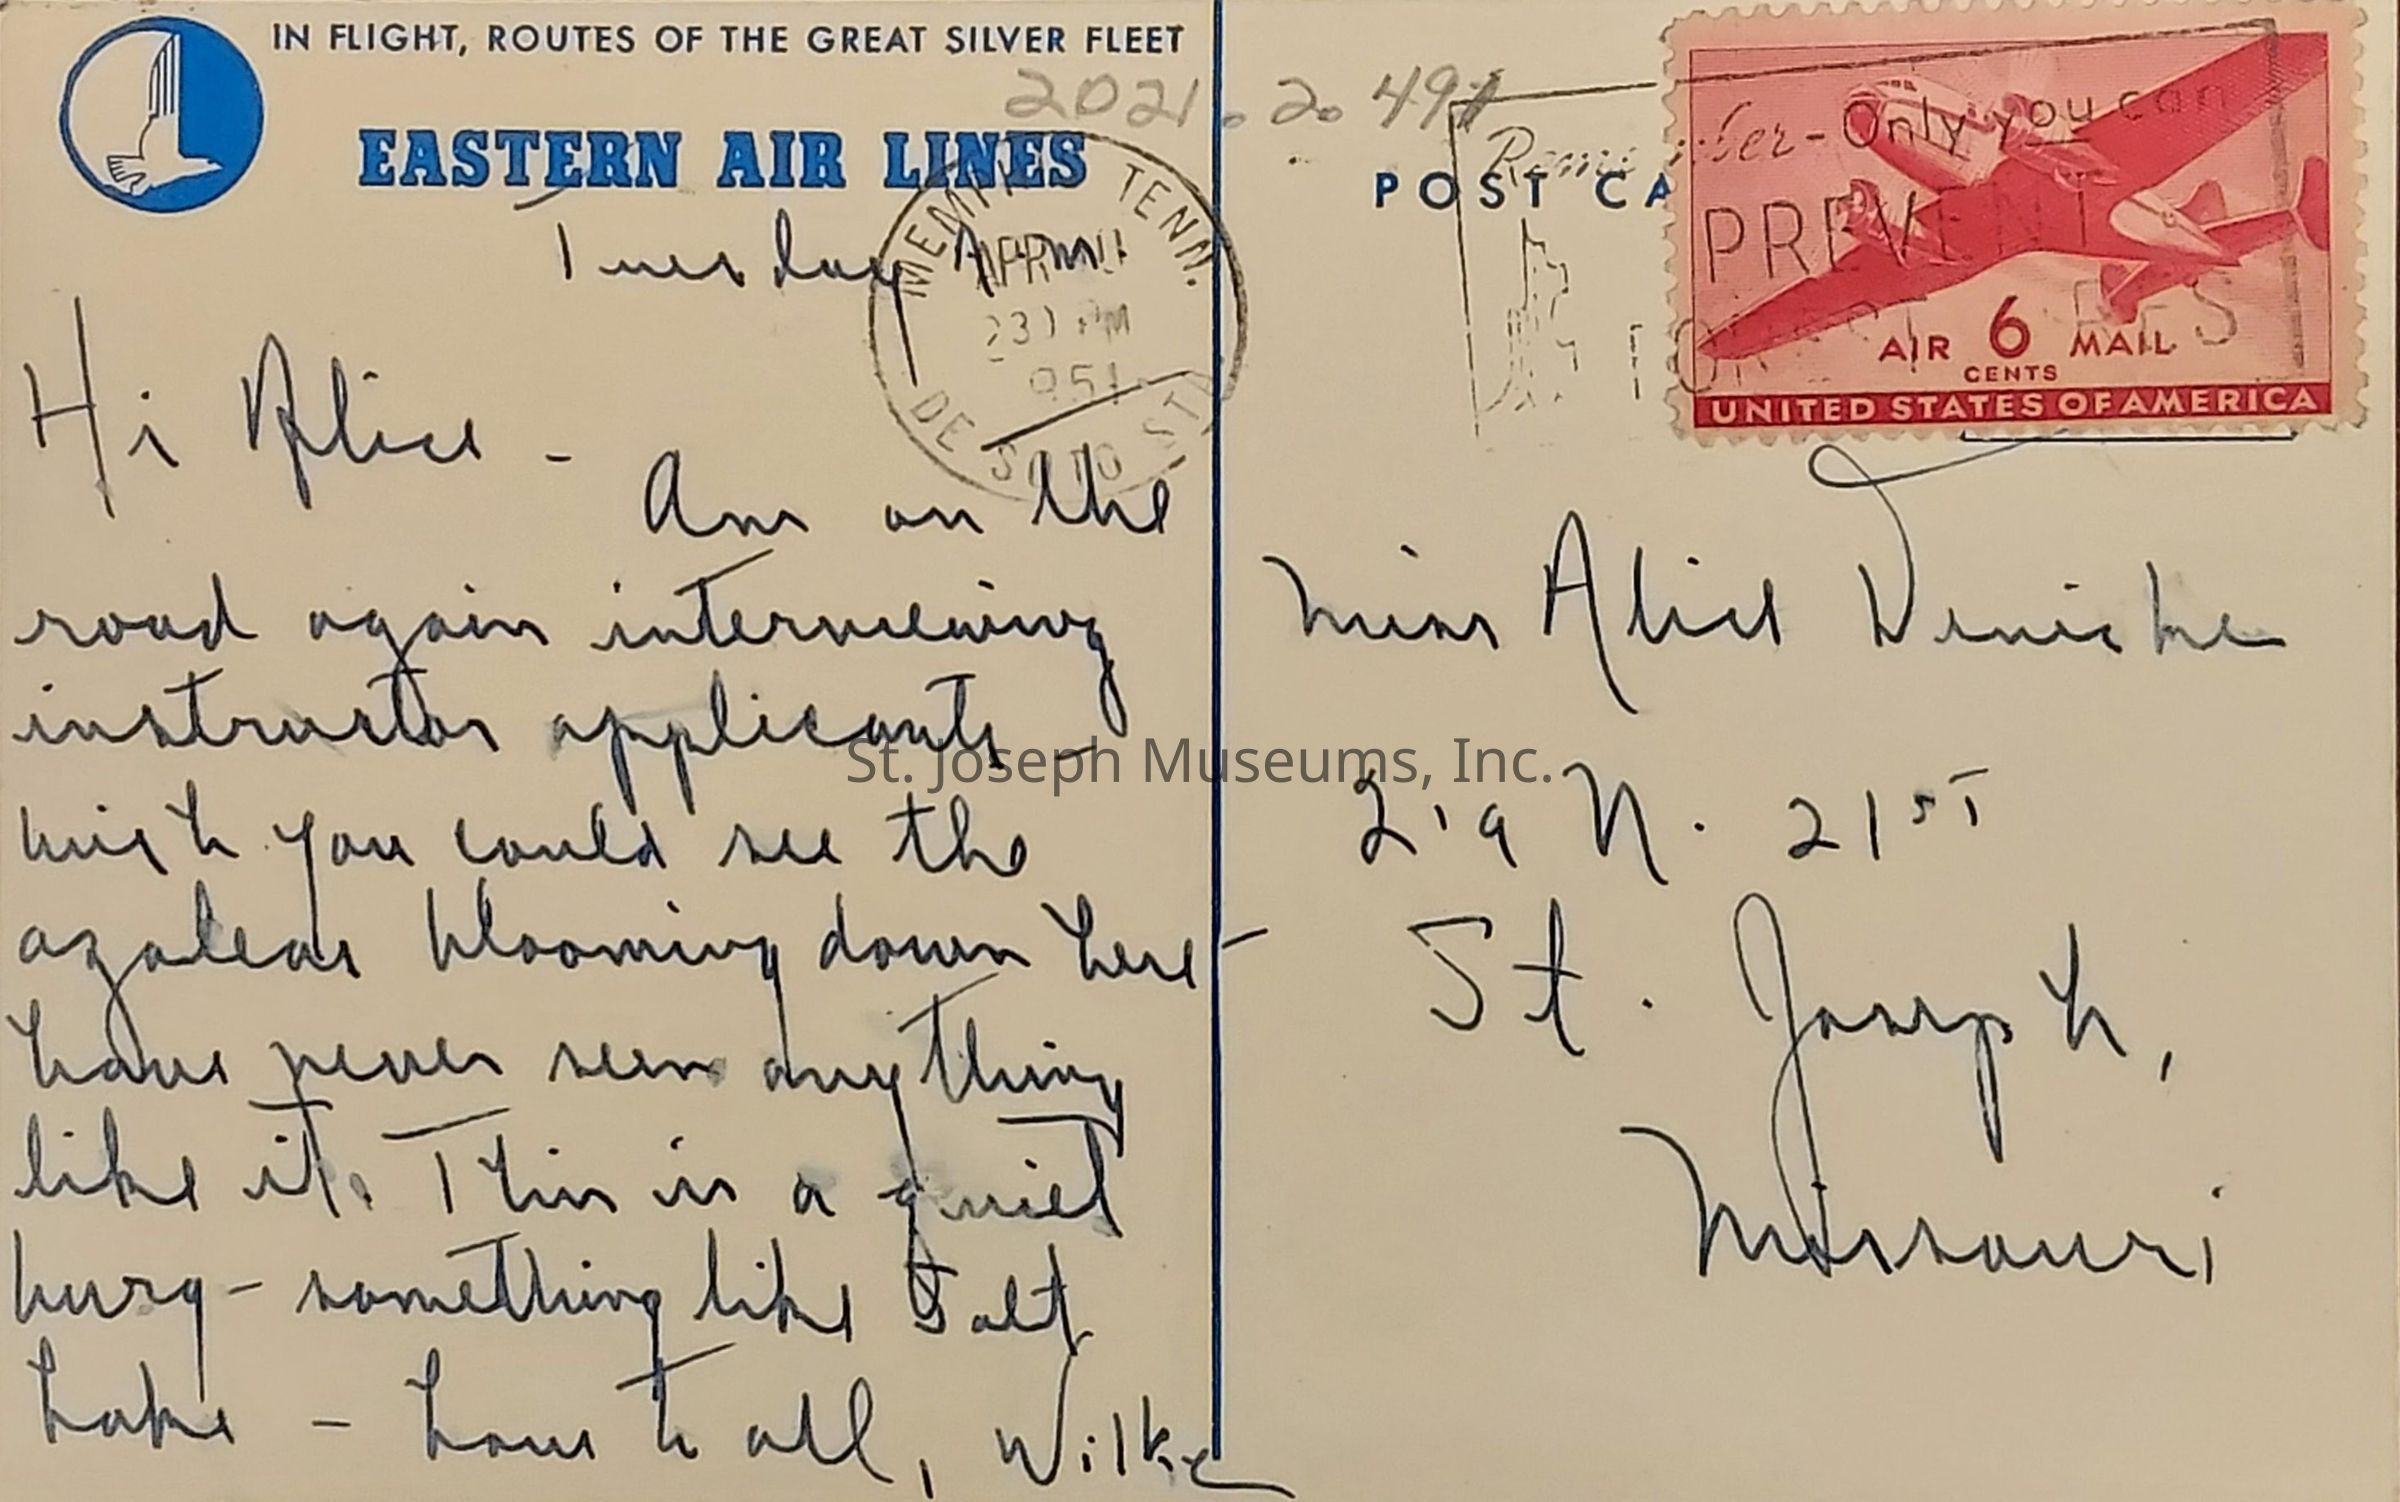 IN FLIGHT, ROUTES OF THE GREAT SILVER FLEET
EASTERN AIR LINES
2021.2.491
Tuesday A.M.
Hi Alice -
Am on the
road again interviewing
instructor applicants -
wish you could see the
azaleas blooming down here -
have never seen anything
like it. This is a quiet
burg - something like Salt
Lake - Love to all, Wilke
MEMPHIS TENN.
APR
230 PM
1951
DE SOTO STA.
POST CA
Remember - Only you can
PREVENT
FOREST FIRES
AIR 6 MAIL
CENTS
UNITED STATES OF AMERICA
Miss Alice Wenicke
219 N. 21ST
St. Joseph,
Missouri
St. Joseph Museums, Inc.